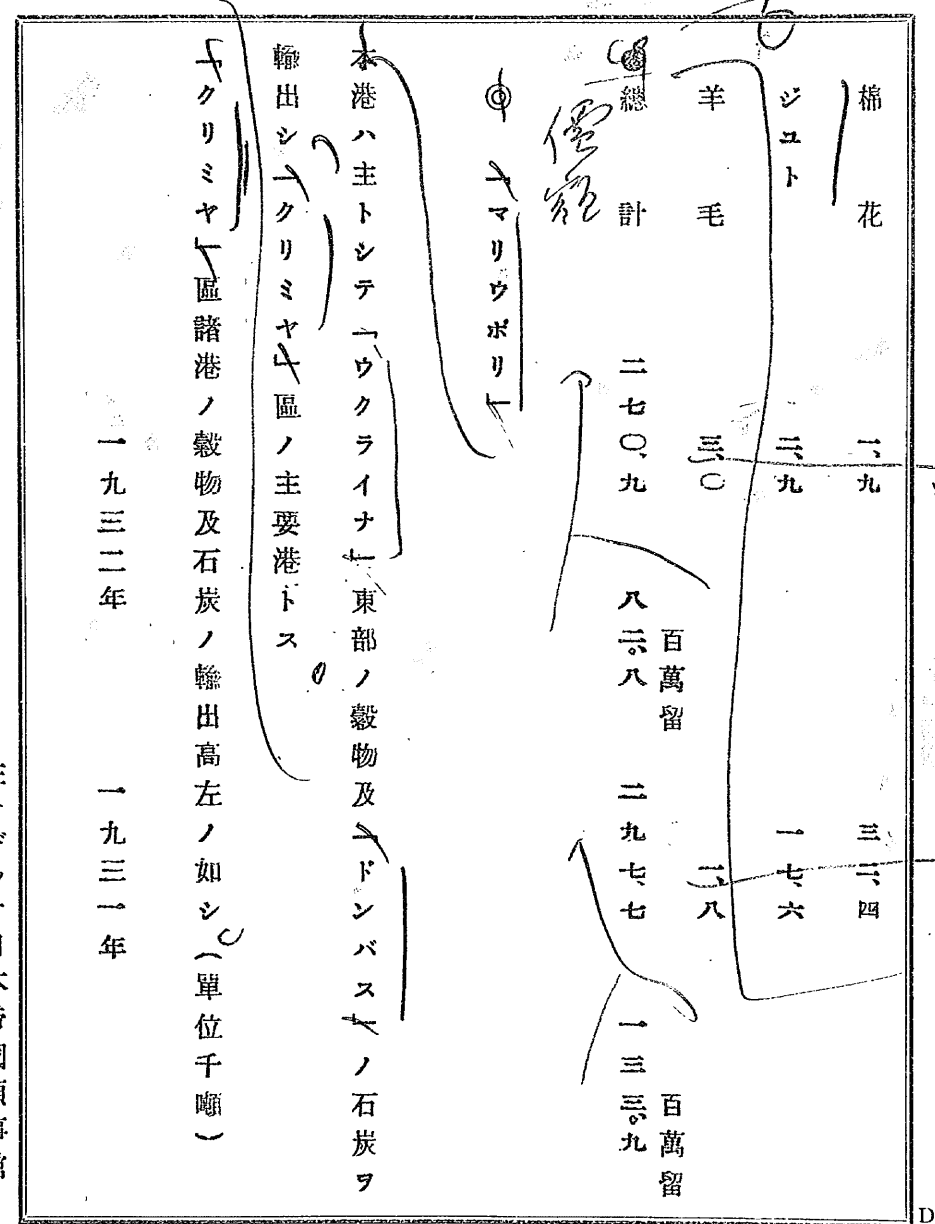 棉花 一、九 三二、四
ジユト 二、九 一七、六
羊毛 三、〇 一、八
百萬留 百萬留
總計 二七〇、九 八二。八 二九七、七 一三三。九
價額
◎「マリウポリ」
本港ハ主トシテ「ウクライナ」東部ノ穀物及「ドンバス」ノ石炭ヲ
輸出シ「クリミヤ」區ノ主要港トス
「クリミヤ」區諸港ノ穀物及石炭ノ輸出高左ノ如シ(單位千噸)
一九三二年 一九三一年
日本帝國領事館
D